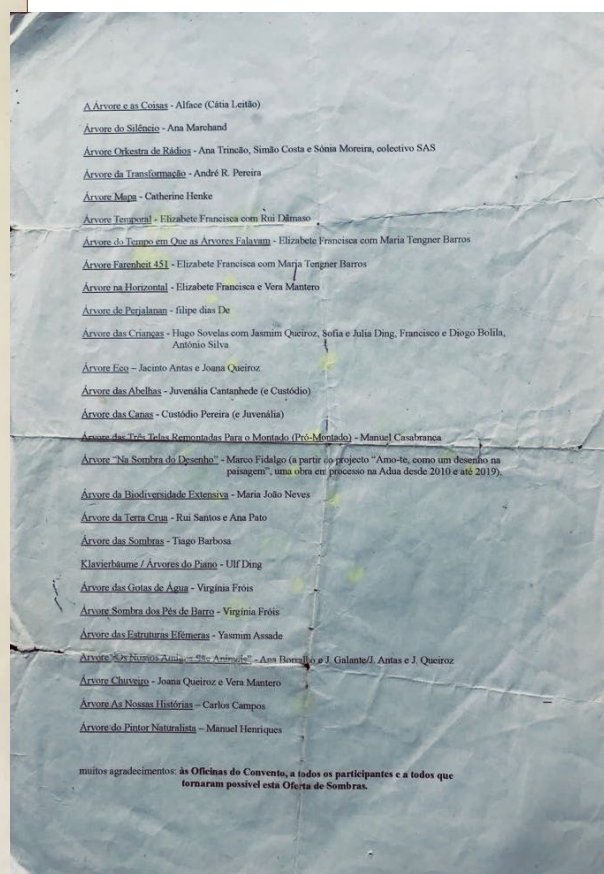 A Árvore e as Coisas - Alface (Cátia Leitão)
Árvore do Silêncio - Ana Marchand
Árvore Orkestra de Rádios - Ana Trincão, Simão Costa e Sónia Moreira, colectivo SAS
Árvore da Transformação - André R. Pereira
Árvore Mapa - Catherine Henke
Árvore Temporal - Elizabete Francisca com Rui Dâmaso
Árvore do Tempo em Que as Árvores Falavam - Elizabete Francisca com Maria Tengner Barros
Árvore Farenheit 451 - Elizabete Francisca com Maria Tengner Barros
Árvore na Horizontal - Elizabete Francisca e Vera Mantero
Árvore de Perjalanan - filipe dias De
Árvore das Crianças - Hugo Sovelas com Jasmim Queiroz, Sofia e Julia Ding, Francisco e Diogo Bolila,
António Silva
Árvore Eco – Jacinto Antas e Joana Queiroz
Árvore das Abelhas - Juvenália Cantanhede (e Custódio)
Árvore das Canas - Custódio Pereira (e Juvenália)
Árvore das Três Telas Remontadas Para o Montado (Pró-Montado) - Manuel Casabranca
Árvore “Na Sombra do Desenho” - Marco Fidalgo (a partir do projecto “Amo-te, como um desenho na
paisagem”, uma obra em processo na Adua desde 2010 e até 2019).
Árvore da Biodiversidade Extensiva - Maria João Neves
Árvore da Terra Crua - Rui Santos e Ana Pato
Árvore das Sombras - Tiago Barbosa
Klavierbäume / Árvores do Piano - Ulf Ding
Árvore das Gotas de Água - Virgínia Fróis
Árvore Sombra dos Pés de Barro - Virgínia Fróis
Árvore das Estruturas Efémeras - Yasmim Assade
Árvore “Os Nossos - Ana Borralho e J. Galante/J. Antas e J. Queiroz
Árvore Chuveiro - Joana Queiroz e Vera Mantero
Árvore As Nossas Histórias – Carlos Campos
Árvore do Pintor Naturalista – Manuel Henriques
muitos agradecimentos: às Oficinas do Convento, a todos os participantes e a todos que
tornaram possível esta Oferta de Sombras.